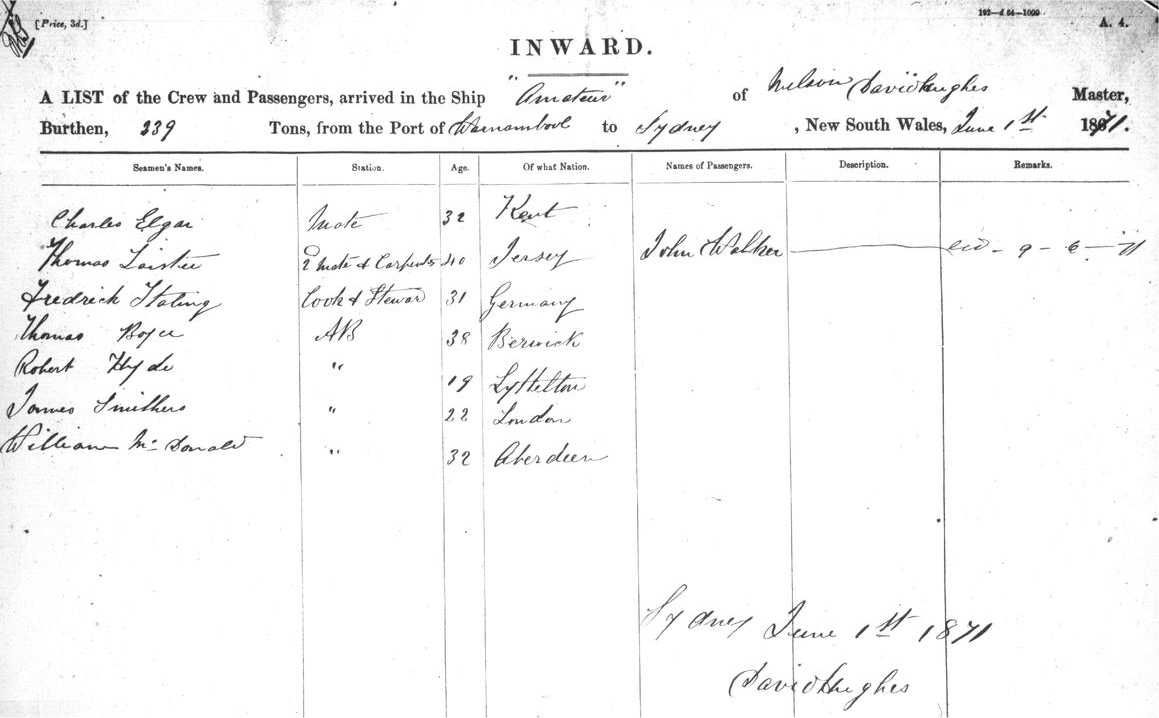 [Price, 3d.]
192—d 64—1000
A. 4.
INWARD.
A LIST of the Crew and Passengers, arrived in the Ship "Amateur" of Nelson David Hughes Master,
Burthen, 239 Tons, from the Port of Warnambool to Sydney, New South Wales, June 1st 1871.
Seamen's Names. Station. Age. Of what Nation. Names of Passengers. Description. Remarks.
Charles Elgar Mate 32 Kent
Thomas 2 Mate & Carpenter 40 Jersey John Walker 9-6-71
Fredrick Stating Cook & Steward 31 Germany
Thomas Boyce AB 38 Berwick
Robert Hyde " 19 Lyttelton
James Smithers " 22 London
William McDonald " 32 Aberdeen
Sydney June 1st 1871
David Hughes